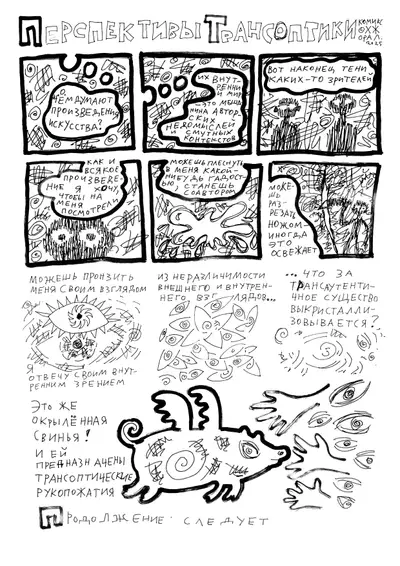 Перспективы Трансоптики
комикс
ОХЖ
ОРАЛ.
2025
О
ЧЁМ ДУМАЮТ
ПРОИЗВЕДЕНИЯ
ИСКУССТВА?
ИХ ВНУТ-
РЕННИЙ МИР
– ЭТО МЕША-
НИНА АВТОР-
СКИХ
НЕДОМЫСЛЕЙ
СМУТНЫХ
КОНТЕКСТОВ
ВОТ НАКОНЕЦ ТЕНИ
КАКИХ-ТО ЗРИТЕЛЕЙ
КАК И
ВСЯКОЕ
ПРОИЗВЕДЕ-
НИЕ Я ХОЧУ,
ЧТОБЫ НА
МЕНЯ
ПОСМОТРЕЛИ
МОЖЕШЬ ПЛЕСНУТЬ
В МЕНЯ КАКОЙ-
НИБУДЬ ГАДОСТЬ-
Ю, СТАНЕШЬ
СОАВТОРОМ
МОЖЕ-
ШЬ
РАЗ-
РЕЗАТЬ
НОЖОМ-
ИНОГДА
ЭТО
ОСВЕЖАЕТ
МОЖЕШЬ ПРОНЗИТЬ
МЕНЯ СВОИМ ВЗГЛЯДОМ
Я
ОТВЕЧУ СВОИМ ВНУТ-
РЕННИМ ЗРЕНИЕМ
ИЗ НЕРАЗЛИЧИМОСТИ
ВНЕШНЕГО И ВНУТРЕН-
НЕГО ВЗГЛЯДОВ...
...ЧТО ЗА
ТРАНСАУТЕНТИ-
ЧНОЕ СУЩЕСТВО
ВЫКРИСТАЛЛИ-
ЗОВЫВАЕТСЯ?
ЭТО ЖЕ
ОКРЫЛЁННАЯ
СВИНЬЯ!
И ЕЙ
ПРЕДНАЗНАЧЕНЫ
ТРАНСОПТИЧЕСКИЕ
РУКОПОЖАТИЯ
ПРОДОЛЖЕНИЕ СЛЕДУЕТ